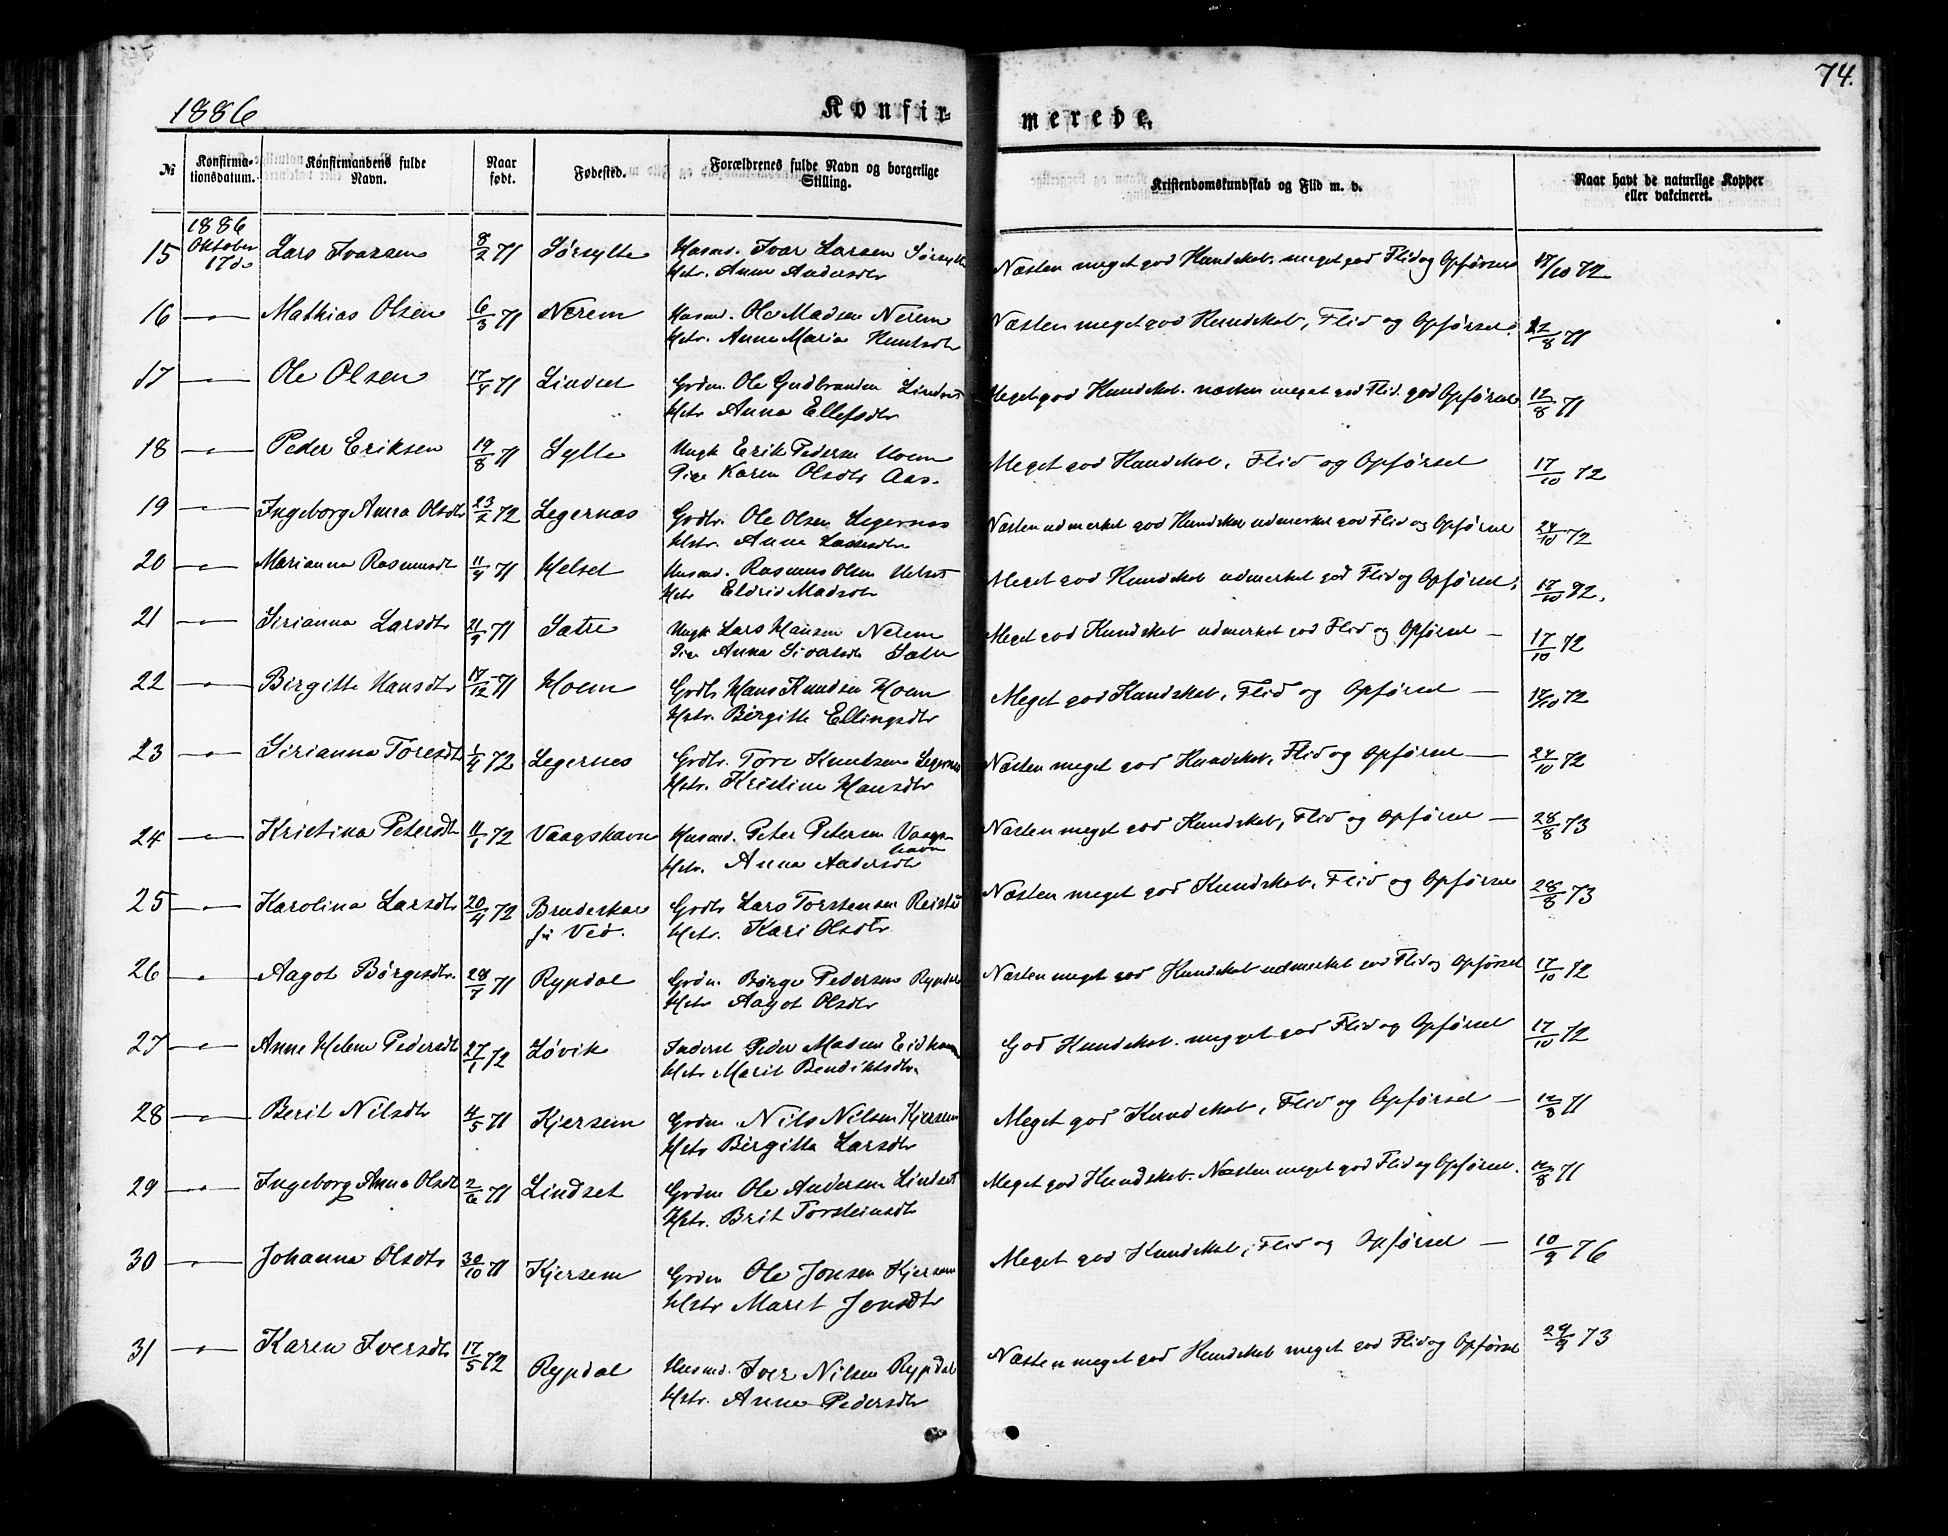 74.
1886
Konfirmerede.
№ Konfirmationsdatum. Konfirmandens fulde Navn. Naar født. Fødested. Forældrenes fulde Navn og borgerlige Stilling. Kristendomskundskab og Flid m. v. Naar havt de naturlige Kopper eller vakcineret.
1886
15 Oktober 17de Lars Ivarsen 8/2 71 Sørsylte Husmd. Ivar Larsen Sørsylte Næsten meget god Kundskab. meget god Flid og Opførsel 17/10 72
Hstr. Anne Andersdtr
16 — " — Mathias Olsen 6/3 71 Nerem Husmd. Ole Madsen Nerem Næsten meget god Kundskab, Flid og Opførsel. 12/8 71
Hstr. Anne Maria Knutsdtr
17 — " — Ole Olsen 17/4 71 Lindset Grdm. Ole Gudbrandsen Lindset Meget god Kundskab. næsten meget god Flid. god Opførsel 12/8 71
Hstr Anna Ellefsdtr
18 — " — Peder Eriksen 19/8 71 Sylte Ungk Erik Pedersen Hoem Meget god Kundskab, Flid og Opførsel 17/10 72
Pige Karen Olsdtr Aas.
19 — " — Ingeborg Anna Olsdtr 23/2 72 Legernæs Grdbr. Ole Olsen Legernæs Næsten udmerket god Kundskab udmerket god Flid og Opførsel 24/10 72
Hstr. Anne Larsdtr
20 — " — Marianna Rasmusdtr 11/4 71 Helset Husmd. Rasmus Olsen Helset Meget god Kundskab udmerket god Flid og Opførsel, 17/10 72.
Hstr Eldrid Madsdtr
21 — " — Sirianna Larsdtr 21/9 71 Sætre Ungk Lars Hansen Nerem Meget god Kundskab udmerket god Flid og Opførsel — 17/10 72
Pige Anna Sivertsdtr Sætre
22 — " — Birgitte Hansdtr 17/12 71 Hoem Grdbr Hans Knudsen Hoem Meget god Kundskab, Flid og Opførsel — 17/10 72
Hstr. Birgitte Ellingsdtr
23 — " — Sirianna Toresdtr 1/4 72 Legernes Grdbr. Tore Knutsen Legernes Næsten meget god Kundskab, Flid og Opførsel — 24/10 72
Hstr. Kristine Hansdtr
24 — " — Kristina Petersdtr 11/1 72 Vaagshavn Husmd. Peter Petersen Vaagshavn Næsten meget god Kundskab, Flid og Opførsel — 28/8 73
Hstr. Anna Andersdtr
25 — " — Karolina Larsdtr 20/4 72 Brudeskar Grdbr Lars Torstensen Næsten meget god Kundskab, Flid og Opførsel 28/8 73
Hstr. Kari Olsdtr
26 — " — Aagot Børgesdtr. 28/7 71 Rypdal Grdm. Børge Pedersen Rypdal Næsten meget god Kundskab udmerket god Flid og Opførsel 17/10 72
Hstr Aagot Olsdtr
27 — " — Anne Helene Pedersdtr 27/1 72 Løvik Inderst Peder Madsen God Kundskab. megget god Flid og Opførsel 17/10 72
Hstr Marit Bendiktsdtr.
28 — " — Berit Nilsdtr 4/5 71 Kjersem Grdm Nils Nilsen Kjersem Meget god Kundskab, Flid og Opførsel — 12/8 71
Hstr Birgitta Larsdtr
29 — " — Ingeborg Anna Olsdtr 2/6 71 Lindset Grdm Ole Andersen Lindset Meget god Kundskab. Næsten meget god Flid og Opførsel. 12/8 71
Hstr. Brit Torsteinsdtr
30 — " — Johanna Olsdtr 30/10 71 Kjersem Grdm Ole Jonsen Kjersem Meget god Kundskab, Flid og Opførsel — 10/9 76
Hstr Marit Jonsdtr
31 — " — Karen Iversdtr 17/5 72 Rypdal Husmd. Iver Nilsen Rypdal Næsten meget god Kundskab meget god Flid og Opførsel 24/9 73
Hstr. Anne Pedersdtr